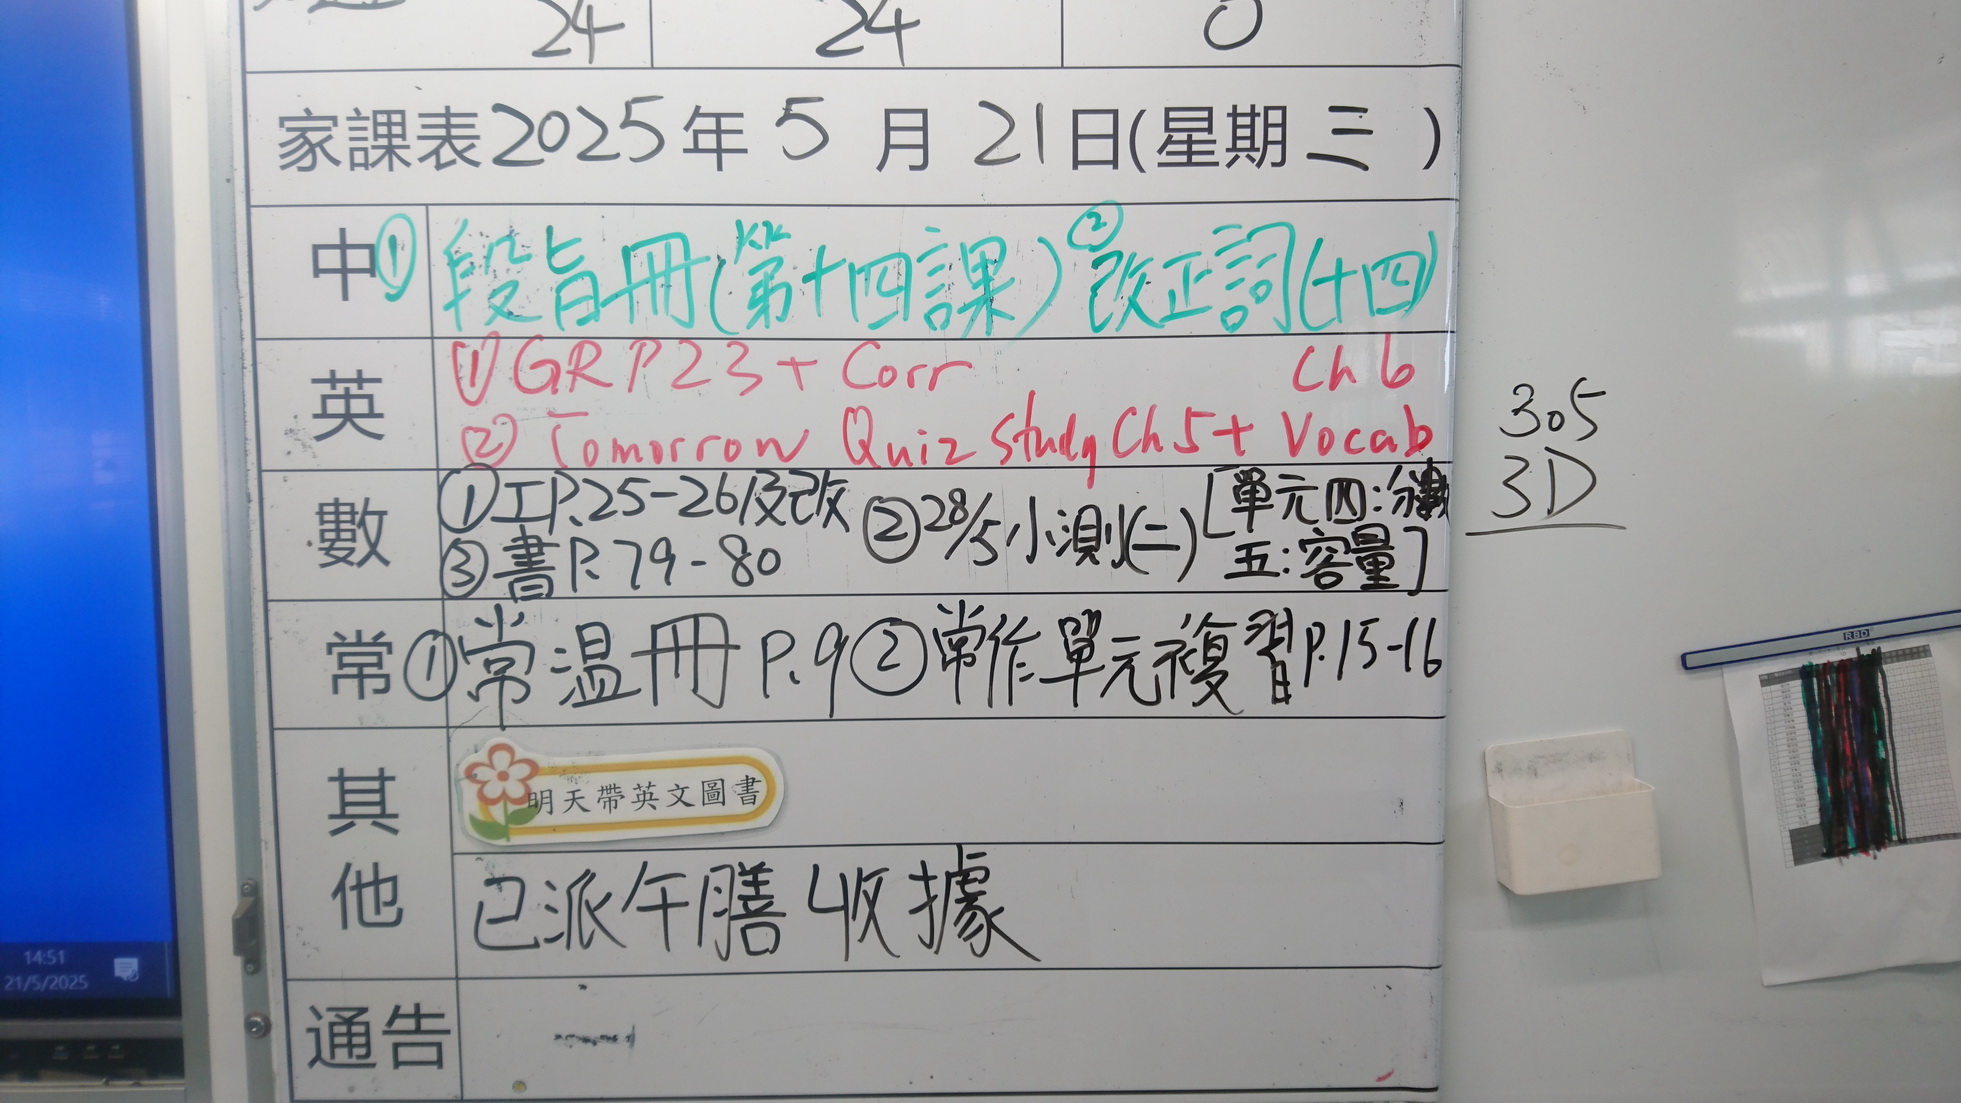 24 24 0
家課表2025年 5 月 21日(星期 三 )
中 ① 段旨冊(第十四課) ② 改正詞(十四)
英 ① GR P23 + Corr Ch 6
② Tomorrow Quiz Study Ch5 + Vocab
數 ① 工P.25-26及改 ② 28/5 小測(二) [單元四:分數
③ 書P.79-80 五:容量]
常 ① 常溫冊 P.9 ② 常作單元複習P.15-16
其他
明天帶英文圖書
已派午膳收據
通告
305
3D
RBD
14:51
21/5/2025